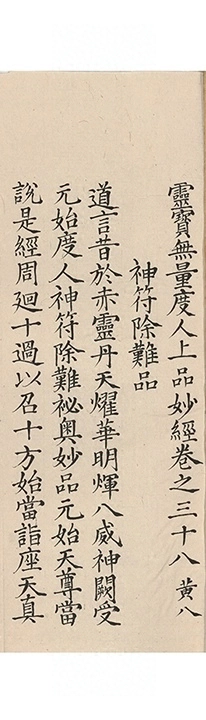 靈寶無量度人上品妙經卷之三十八 黃八
神符除難品
道言昔於赤靈丹天燿華明煇八威神闕受
元始度人神符除難祕奧妙品元始天尊當
說是經周廻十過以召十方始當詣座天真